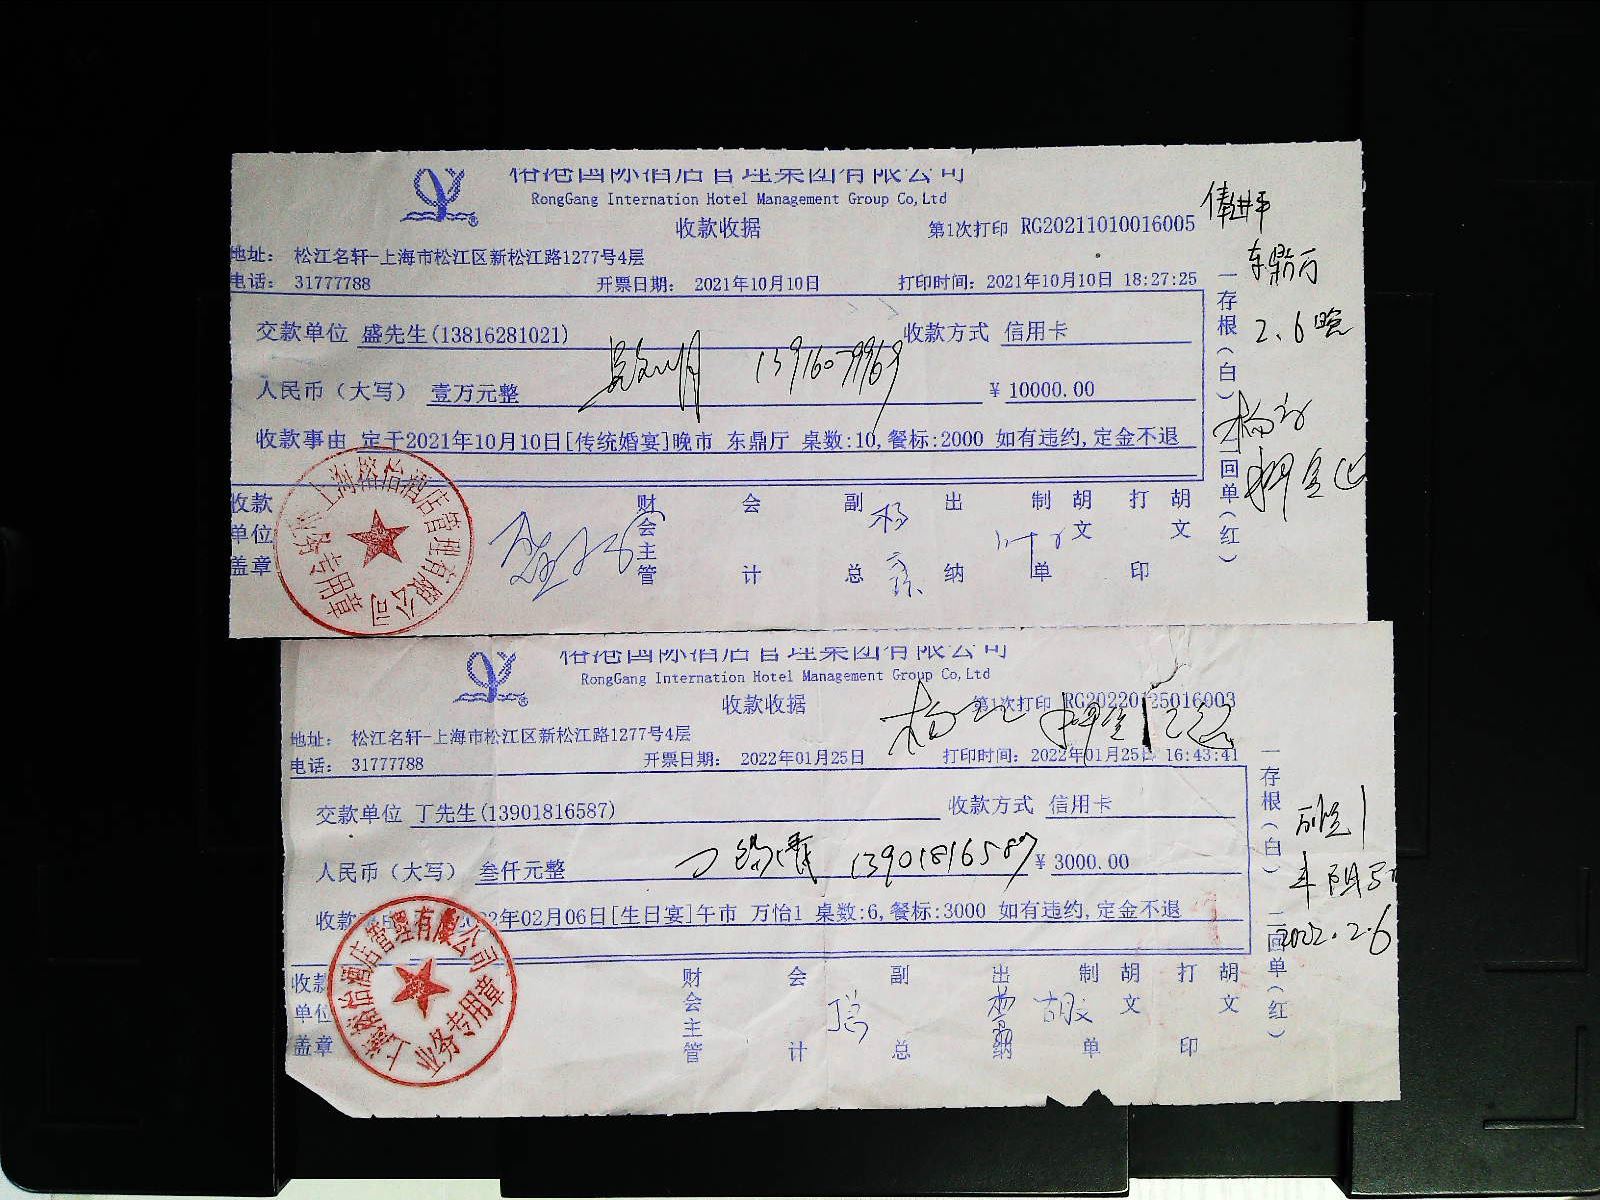 榕港国际酒店管理集团有限公司
RongGang Internation Hotel Management Group Co,Ltd
收款收据
第1次打印 RG20211010016005
地址： 松江名轩-上海市松江区新松江路1277号4层
电话： 31777788
开票日期： 2021年10月10日
打印时间：2021年10月10日 18:27:25
交款单位 盛先生(13816281021)
收款方式 信用卡
13916079969
人民币（大写） 壹万元整
￥10000.00
收款事由 定于2021年10月10日[传统婚宴]晚市 东鼎厅 桌数:10,餐标:2000 如有违约,定金不退
收款单位盖章
财会主管
会计
副总
杨
出纳
制单
胡文
打印
胡文
一存根（白）
二回单（红）
2.6晚
上海榕怡酒店管理有限公司
财务专用章
榕港国际酒店管理集团有限公司
RongGang Internation Hotel Management Group Co,Ltd
收款收据
第1次打印 RG20220125016003
地址： 松江名轩-上海市松江区新松江路1277号4层
电话： 31777788
开票日期： 2022年01月25日
打印时间：2022年01月25日 16:43:41
交款单位 丁先生(13901816587)
收款方式 信用卡
13901816587
人民币（大写） 叁仟元整
￥3000.00
收款 22年02月06日[生日宴]午市 万怡1 桌数:6,餐标:3000 如有违约,定金不退
收款单位盖章
财会主管
会计
副总
出纳
制单
胡文
打印
胡文
一存根（白）
二回单（红）
2022.2.6
上海榕怡酒店管理有限公司
业务专用章